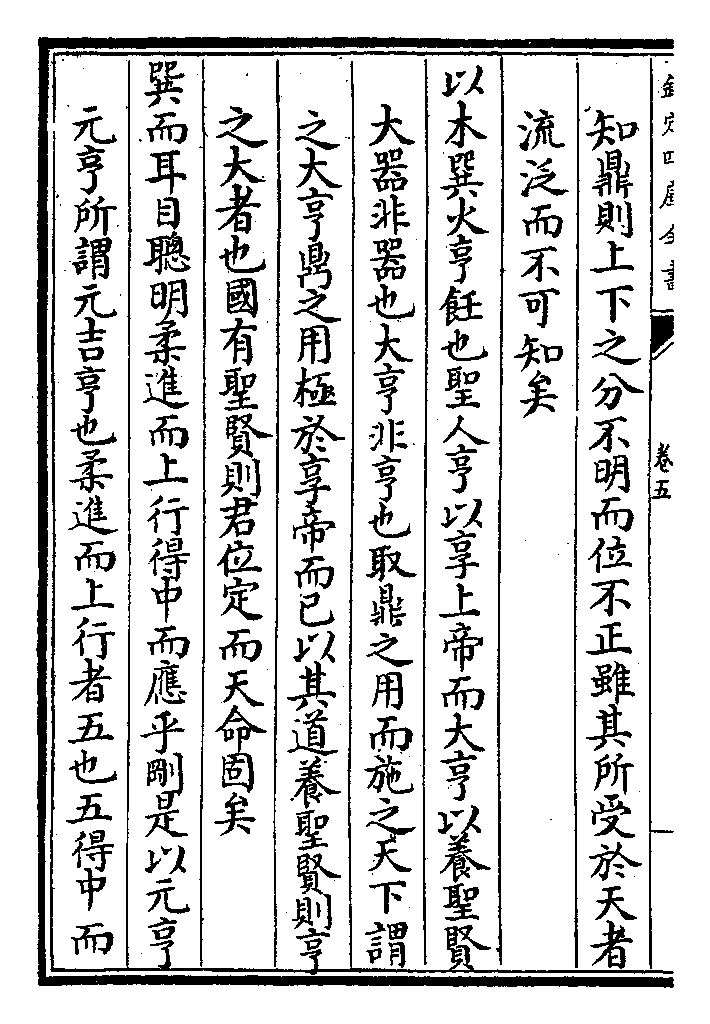 欽定四庫全書
卷五
知鼎則上下之分不明而位不正雖其所受於天者
流泛而不可知矣
以木巽火亨飪也聖人亨以享上帝而大亨以養聖賢
大器非器也大亨非亨也取鼎之用而施之天下謂
之大亨鼎之用極於享帝而已以其道養聖賢則亨
之大者也國有聖賢則君位定而天命固矣
巽而耳目聰明柔進而上行得中而應乎剛是以元亨
元亨所謂元吉亨也柔進而上行者五也五得中而